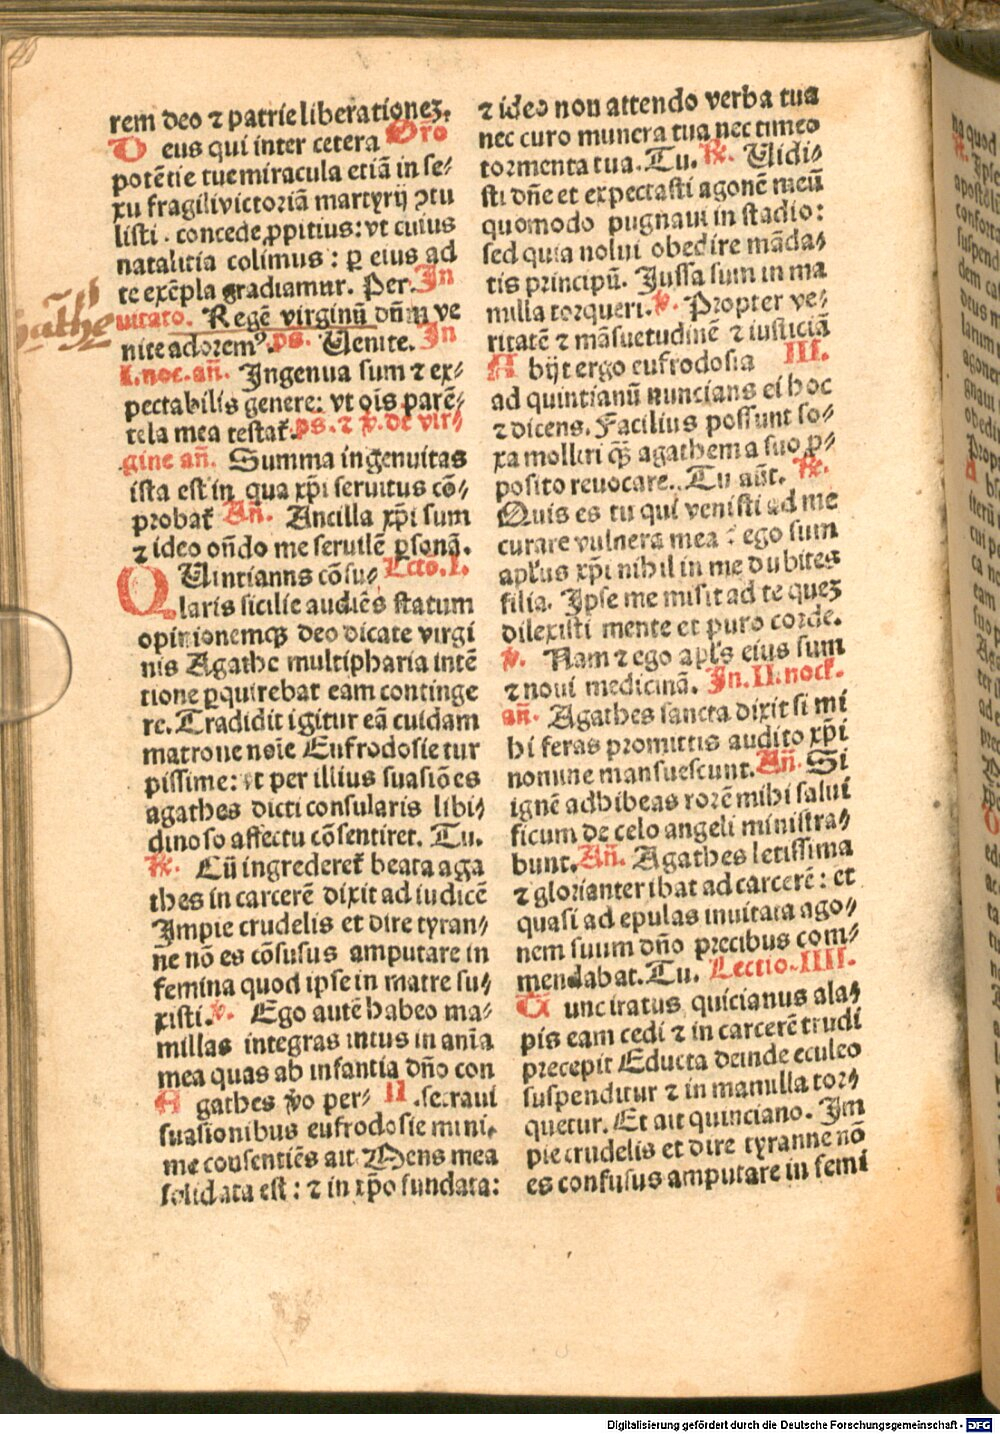 rem deo ⁊ patrie liberationeʒ.
Deus qui inter cetera Orõ
potẽtie tue miracula etiã in se⸗
xu fragili victoriã martyrij ꝯtu
listi . concede ꝓpitius: vt cuius
natalitia colimus : ꝑ eius ad
te exẽpla gradiamur. Per. In
uitato. Regẽ virginũ dñm ve
nite adorem⁹. ps. Uenite. In
I. noc. añ. Ingenua sum ⁊ ex⸗
pectabilis genere: vt oĩs parẽ⸗
tela mea testat̃. ps. ⁊ ꝟ. de vir⸗
gine añ. Summa ingenuitas
ista est in qua xp̃i seruitus cõ⸗
probat̃ Añ. Ancilla xp̃i sum
⁊ ideo oñdo me seruilẽ ꝑsonã.
QUintianns cõsu⸗ Lcto. I.
laris sicilie audiẽs statum
opinionemqꝫ deo dicate virgi
nis Agathe multipharia intẽ
tione ꝑquirebat eam continge
re. Tradidit igitur eã cuidam
matrone noĩe Eufrodosie tur
pissime: vt per illius suasiões
agathes dicti consularis libi⸗
dinoso affectu cõsentiret. Tu.
℟. Cũ ingrederet̃ beata aga
thes in carcerẽ dixit ad iudicẽ
Impie crudelis et dire tyran⸗
ne nõ es cõfusus amputare in
femina quod ipse in matre su⸗
xisti. ꝟ. Ego autẽ habeo ma⸗
millas integras intus in aĩa
mea quas ab infantia dño con
Agathes ꝟo per⸗ II .secraui
suasionibus eufrodosie mini⸗
me consentiẽs ait Mens mea
solidata est : ⁊ in xp̃o fundata:
⁊ ideo non attendo verba tua
nec curo munera tua nec timeo
tormenta tua. Tu. ℟. Uidi⸗
sti dñe et expectasti agonẽ meũ
quomodo pugnaui in stadio:
sed quia nolui obedire mãda⸗
tis principũ. Jussa sum in ma
milla torqueri. ꝟ. Propter ve⸗
ritatẽ ⁊ mãsuetudinẽ ⁊ iusticiã
Abijt ergo eufrodosia III.
ad quintianũ nuncians ei hoc
⁊ dicens. Facilius possunt so⸗
xa molliri qꝫ̃ agathe ma suo ꝓ⸗
posito reuocare. Tu aũt. ℟.
Quis es tu qui venisti ad me
curare vulnera mea : ego sum
apl̃us xp̃i nihil in me dubites
filia. Ipse me misit ad te queʒ
dilexisti mente et puro corde.
ꝟ. Nam ⁊ ego apl̃s eius sum
⁊ noui medicinã. In. II. noct̃.
añ. Agathes sancta dixit si mi
hi feras promittis audito xp̃i
nomine mansuescunt. Añ. Si
ignẽ adhibeas rorẽ mihi salui
ficum de celo angeli ministra⸗
bunt. Añ. Agathes letissima
⁊ glorianter ibat ad carcerẽ : et
quasi ad epulas inuitata ago⸗
nem suum dño precibus com⸗
mendabat. Tu. Lectio. IIII.
Tunc iratus quicianus ala⸗
pis eam cedi ⁊ in carcerẽ trudi
precepit Educta deinde eculeo
suspenditur ⁊ in mamilla tor⸗
quetur. Et ait quinciano. Im
pie crudelis et dire tyranne nõ
es confusus amputare in femi
Digitalisierung gefördert durch die Deutsche Forschungsgemeinschaft - DFG